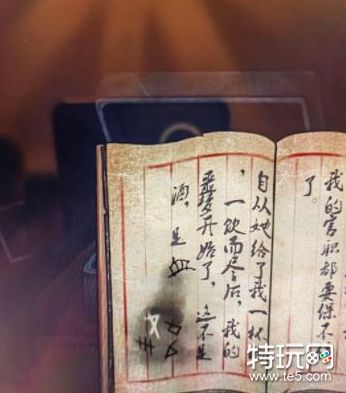 我的官职都要保不
了。
自从她给了我一杯
，一饮而尽后，我的
噩梦开始了，这不是
酒，是血
特玩网
www.te5.com